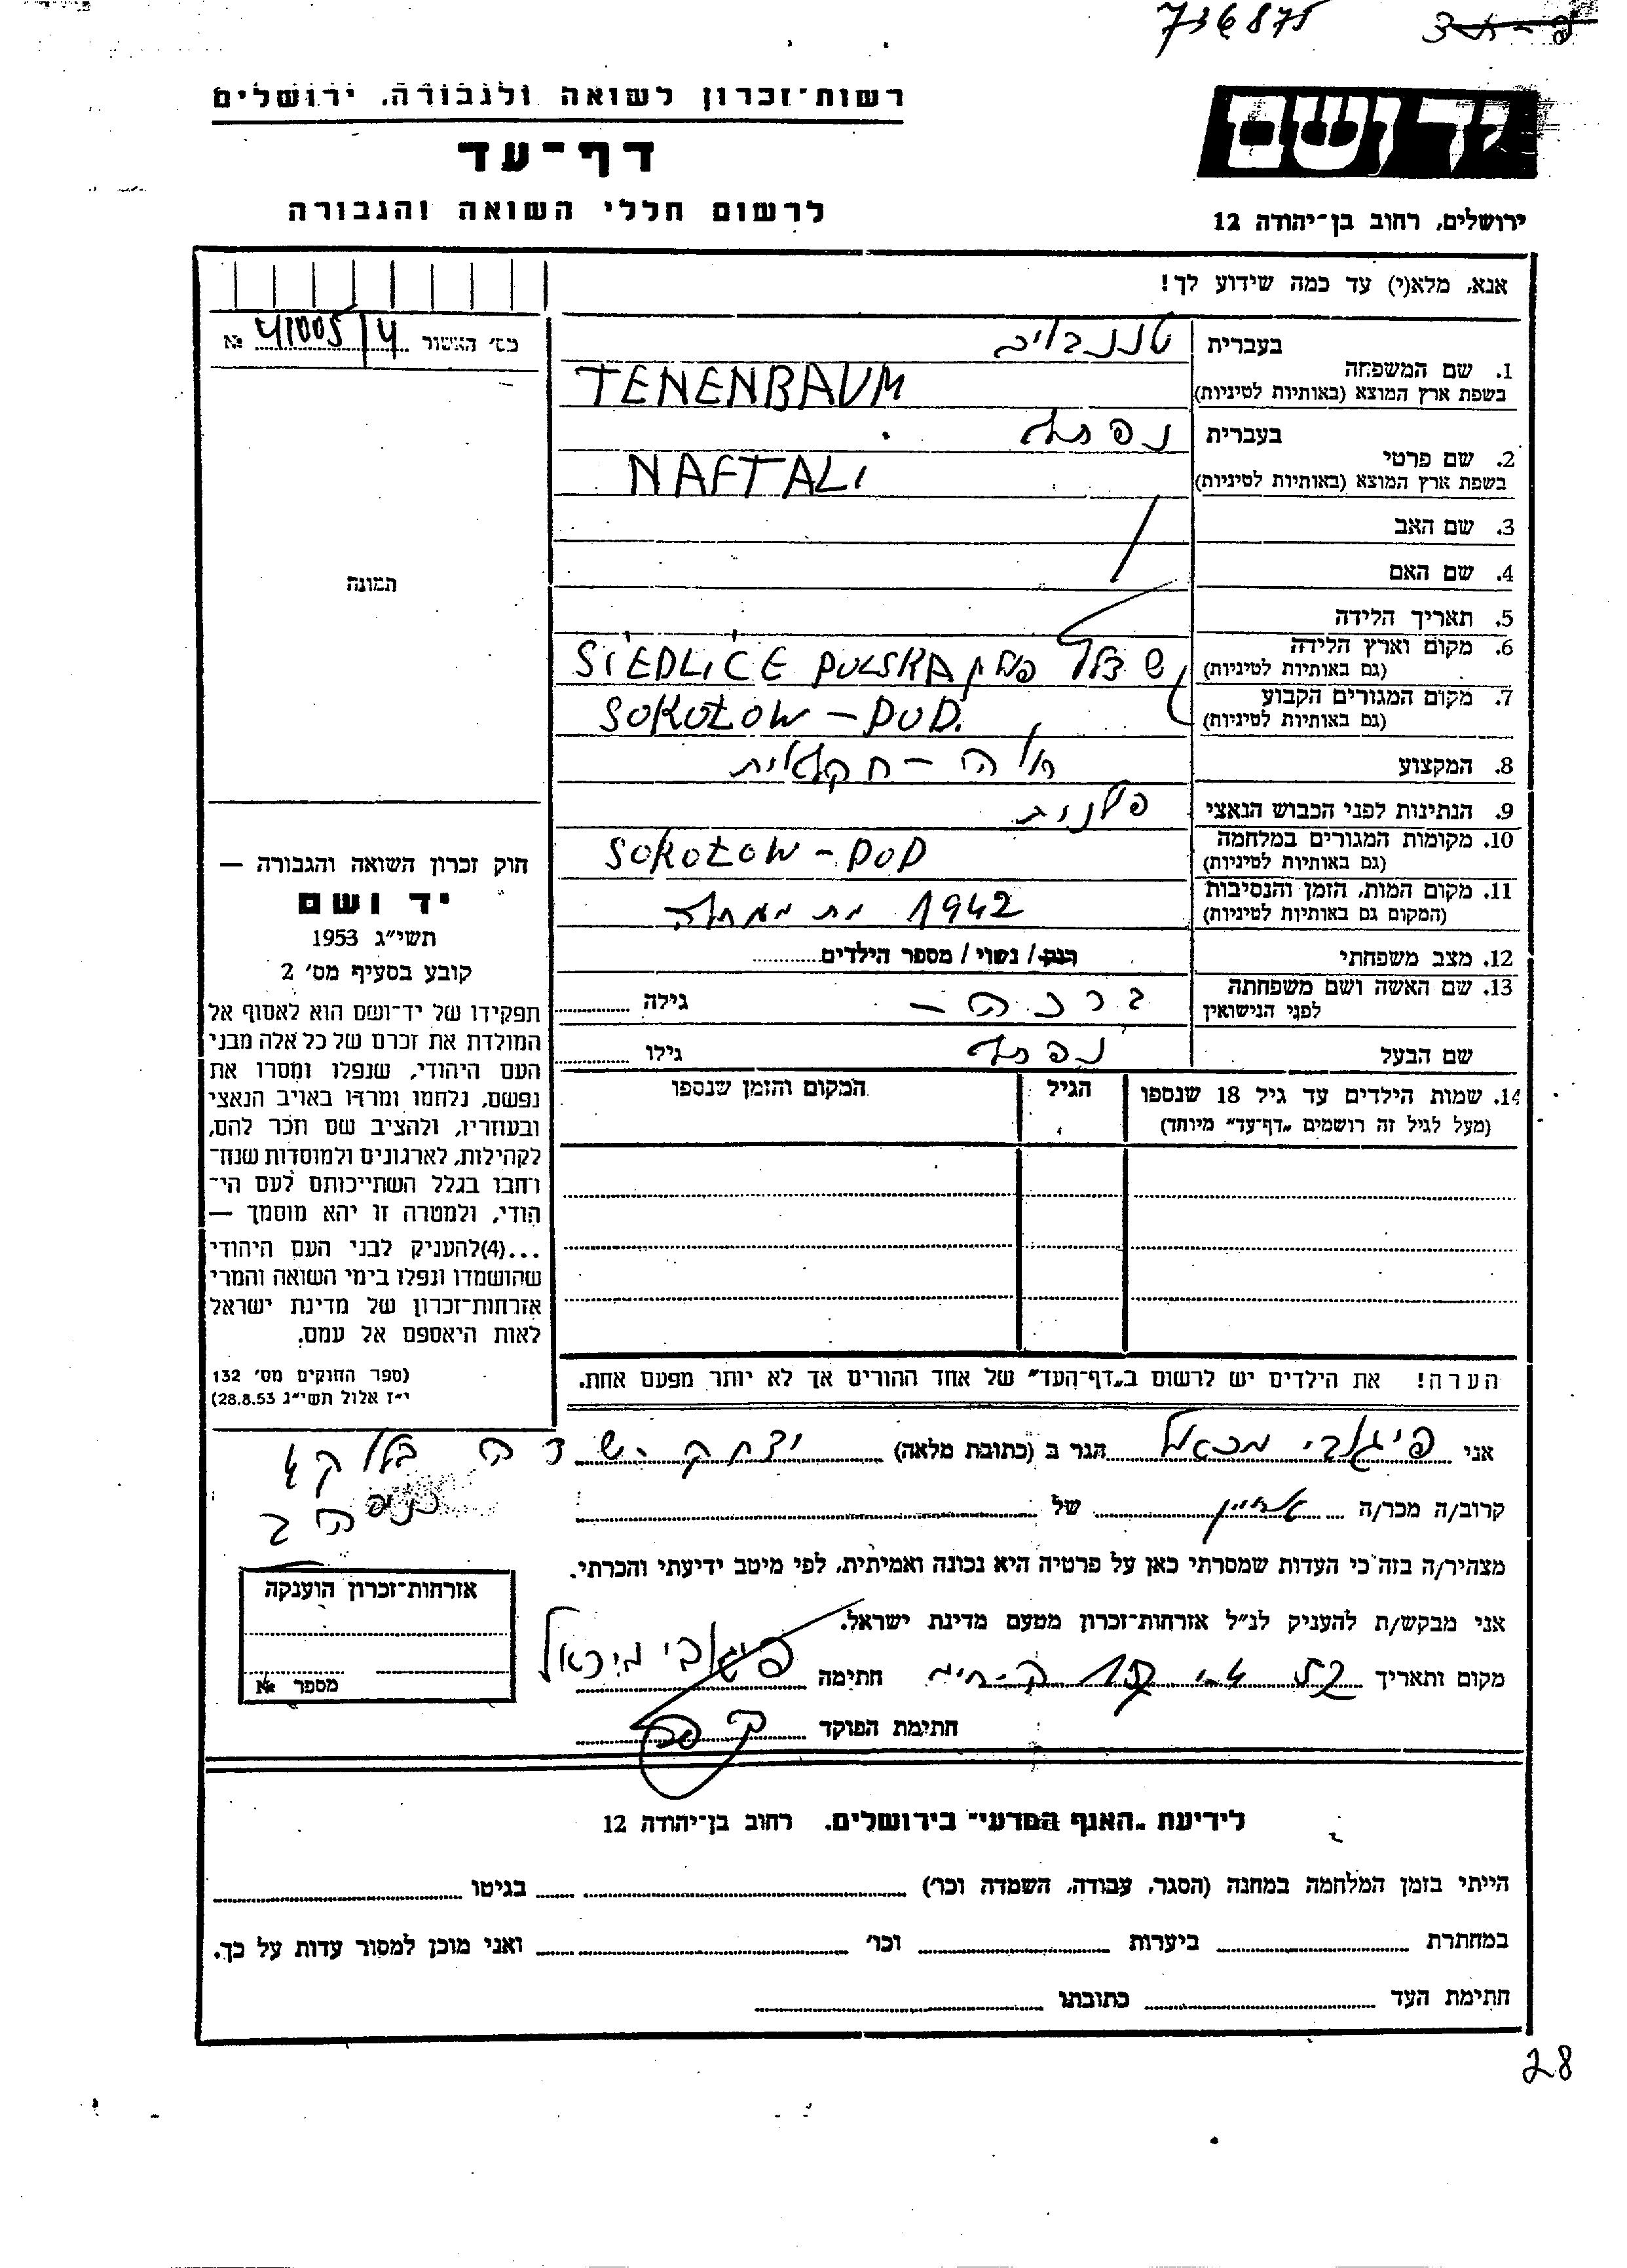 736875
רשות־זכרון לשואה ולגבורה, ירושלים
יד ושם
דף־עד
לרשום חללי השואה והגבורה
ירושלים, רחוב בן־יהודה 12
אנא, מלא(י) עד כמה שידוע לך!
מס׳ האשור 41005/4 №
בעברית טננבוים
1. שם המשפחה
בשפת ארץ המוצא (באותיות לטיניות) TENENBAUM
בעברית נפתלי
2. שם פרטי
בשפת ארץ המוצא (באותיות לטיניות) NAFTALI
3. שם האב
4. שם האם
תמונה
5. תאריך הלידה
6. מקום וארץ הלידה
(גם באותיות לטיניות) שדלץ פולין SIEDLICE POLSKA
7. מקום המגורים הקבוע
(גם באותיות לטיניות) SOKOŁOW - POD.
8. המקצוע חקלאית
9. הנתינות לפני הכבוש הנאצי פולנית
10. מקומות המגורים במלחמה
(גם באותיות לטיניות) SOKOŁOW - POD
11. מקום המות, הזמן והנסיבות
(המקום גם באותיות לטיניות) 1942 מת ממחלה
12. מצב משפחתי רוק / נשוי / מספר הילדים
13. שם האשה ושם משפחתה
לפני הנישואין ברכה – גילה
שם הבעל נפתלי גילו
14. שמות הילדים עד גיל 18 שנספו הגיל המקום והזמן שנספו
(מעל לגיל זה רושמים „דף־עד" מיוחד)
חוק זכרון השואה והגבורה —
יד ושם
תשי״ג 1953
קובע בסעיף מס׳ 2
תפקידו של יד־ושם הוא לאסוף אל
המולדת את זכרם של כל אלה מבני
העם היהודי, שנפלו ומסרו את
נפשם, נלחמו ומרדו באויב הנאצי
ובעוזריו, ולהציב שם וזכר להם,
לקהילות, לארגונים ולמוסדות שנח־
רבו בגלל השתייכותם לעם הי־
הודי, ולמטרה זו יהא מוסמך —
...(4)להעניק לבני העם היהודי
שהושמדו ונפלו בימי השואה והמרי
אזרחות־זכרון של מדינת ישראל
לאות היאספם אל עמם.
(ספר החוקים מס׳ 132
י״ז אלול תשי״ג 28.8.53)
הערה! את הילדים יש לרשום ב„דף־העד" של אחד ההורים אך לא יותר מפעם אחת.
אני פיגובי מכאל הגר ב (כתובת מלאה) יצחק שדה בלוק 4
קרוב/ה מכר/ה אחיין של
מצהיר/ה בזה כי העדות שמסרתי כאן על פרטיה היא נכונה ואמיתית, לפי מיטב ידיעתי והכרתי.
אני מבקש/ת להעניק לנ״ל אזרחות־זכרון מטעם מדינת ישראל.
מקום ותאריך חתימה פיגובי מיכאל
חתימת הפוקד
אזרחות־זכרון הוענקה
מספר №
לידיעת „האגף המדעי" בירושלים, רחוב בן־יהודה 12
הייתי בזמן המלחמה במחנה (הסגר, עבודה, השמדה וכו׳) בגיטו
במחתרת ביערות וכו׳ ואני מוכן למסור עדות על כך.
חתימת העד כתובתו
28